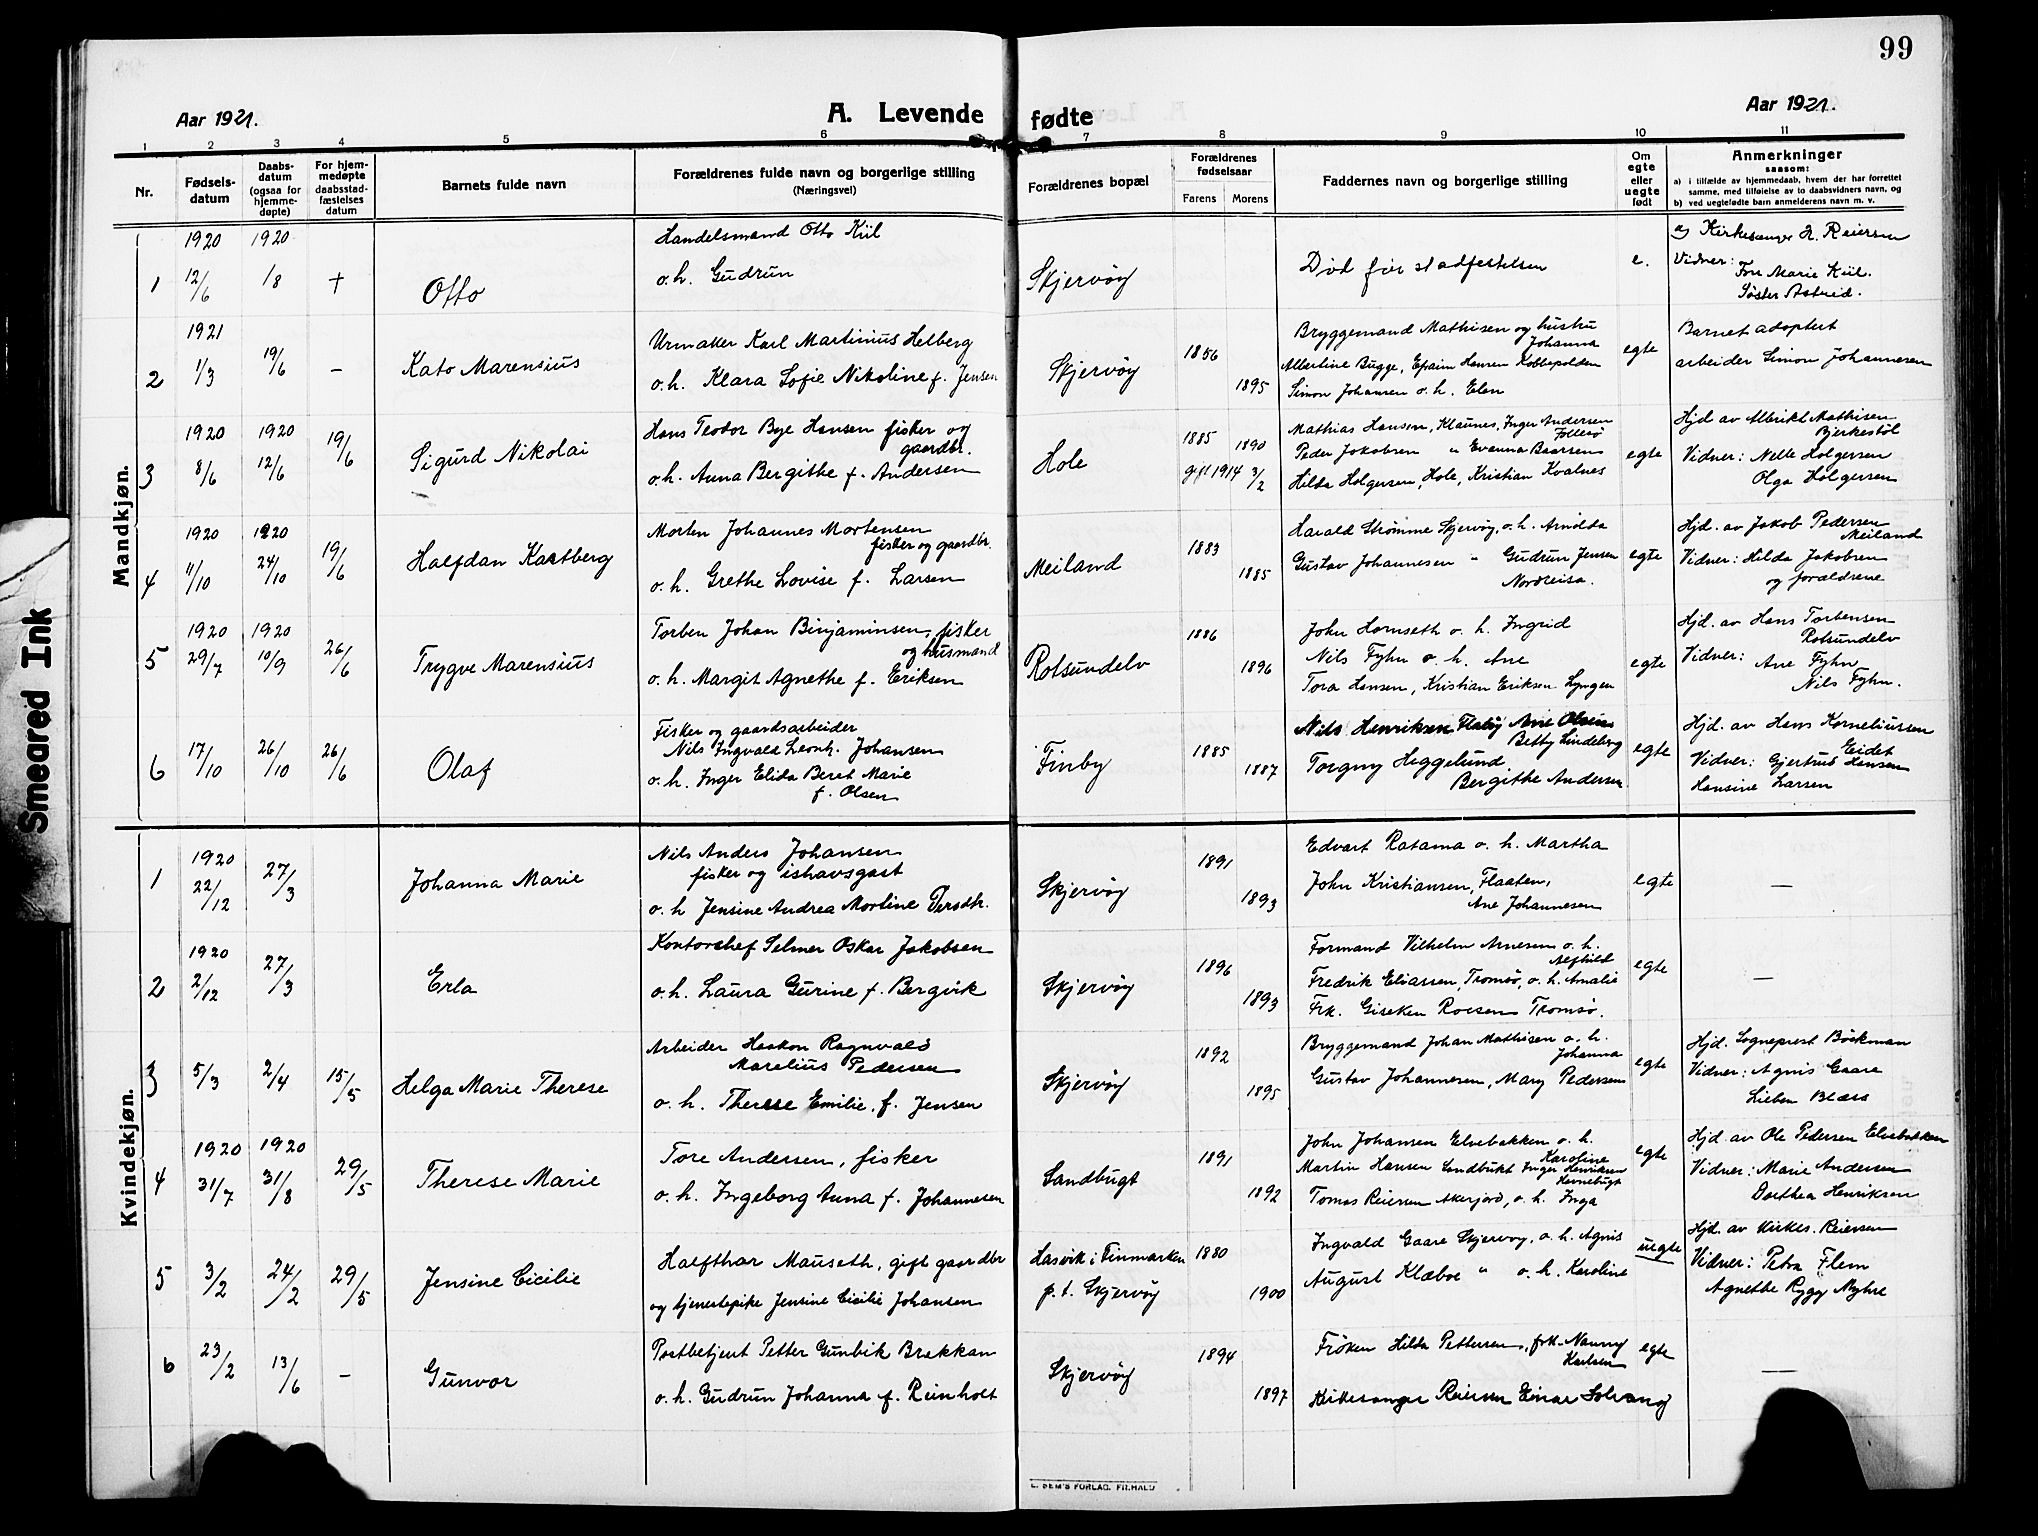 99
Aar 1921.
A. Levende fødte
Aar 1921.
1 2 3 4 5 6 7 8 9 10 11
Nr.
Fødsels-
datum
Daabs-
datum
(ogsaa for
hjemme-
døpte)
For hjem-
medøpte
daabsstad-
fæstelses
datum
Barnets fulde navn
Forældrenes fulde navn og borgerlige stilling
(Næringsvei)
Forældrenes bopæl
Forældrenes
fødselsaar
Farens Morens
Faddernes navn og borgerlige stilling
Om
egte
eller
uegte
født
Anmerkninger
saasom:
a) i tilfælde av hjemmedaab, hvem der har forrettet
samme, med tilføielse av to daabsvidners navn, og
b) ved uegtefødte barn anmelderens navn m. v.
Mandkjøn.
1 1920 12/6 1920 1/8 + Otto
Handelsmand Otto Kiil
o.h. Gudrun
Skjervøy
Død før stadfestelsen
e.
a) Kirkesanger H. Reiersen
Vidner:
Fru Marie Kiil.
Søster Astrid.
2 1921 1/3 19/6 - Kato Marensius
Urmaker Karl Martinius Helberg
o.h. Klara Sofie Nikoline f. Jensen
Skjervøy
1856
1895
Bryggemand Mathisen og hustru
Johanna
Albertine Bugge, Efraim Hansen Kobbepolden
Simon Johansen o.h. Elen
egte
Barnet adoptert
arbeider Simon Johannesen
3 1920 8/6 1920 12/6 19/6 Sigurd Nikolai
Hans Teodor Bye Hansen fisker og
gaardbr.
o.h. Anna Bergithe f. Andersen
Hole
1885 1890
gift 1914 3/2
Mathias Hansen, Klaunes, Inger Andersen
Follesø
Peder Jakobsen " Evanna Baarsen
Hilda Holgersen, Hole, Kristian Kvalnes
egte
Hjd. av Albrikt Mathisen
Bjerkestøl
Vidner: Nelle Holgersen
Olga Holgersen
4 1920 11/10 1920 24/10 19/6 Halfdan Kastberg
Morten Johannes Mortensen
fisker og gaardbr.
o.h. Grethe Lovise f. Larsen
Meiland
1883
1885
Harald Strømme Skjervøy, o.h. Arnolda
Gustav Johannesen " Gudrun Jensen
Nordreisa.
egte
Hjd. av Jakob Pedersen
Meiland
Vidner: Hilda Jakobsen
og forældrene
5 1920 29/7 1920 10/9 26/6 Trygve Marensius
Torben Johan Binjaminsen, fisker
og husmand
o.h. Margit Agnethe f. Eriksen
Rotsundelv
1886
1896
John Hornseth o. h. Ingrid
Nils Fyhn o. h. Ane
Tora Hansen, Kristian Eriksen Lyngen
egte
Hjd. av Hans Torbensen
Rotsundelv
Vidner: Ane Fyhn
Nils Fyhn.
6 17/10 26/10 26/6 Olaf
Fisker og gaardsarbeider
Nils Ingvald Leonh. Johansen
o.h. Inger Elida Beret Marie
f. Olsen
Finby
1885
1887
Nils Henriksen Flatøy Ane Olsen
Betty Lindeberg
Torgny Heggelund
Bergithe Andersen
egte
Hjd. av Hans Korneliussen
Eidet
Vidner: Gjertrud Hansen
Hansine Larsen
Kvindekjøn.
1 1920 22/12 27/3 Johanna Marie
Nils Anders Johansen
fisker og ishavsgast
o.h Jensine Andrea Mortine Persdtr.
Skjervøy
1891
1893
Edvart Ratama o. h. Martha
John Kristiansen, Flaaten,
Ane Johannesen
egte
—
2 1920 2/12 27/3 Erla
Kontorchef Selmer Oskar Jakobsen
o.h. Laura Gurine f. Bergvik
Skjervøy
1896
1893
Formand Vilhelm Arnesen o. h.
Alfhild
Fredrik Eliassen, Tromsø, o. h. Amalie
Frk. Giseken Roesen Tromsø.
egte
—
3 5/3 2/4 15/5 Helga Marie Therese
Arbeider Haakon Ragnvald
Marelius Pedersen
o. h. Therese Emilie, f. Jensen
Skjervøy
1892
1895
Bryggemand Johan Mathisen o. h.
Johanna
Gustav Johannesen, Mary Pedersen
egte
Hjd. Sogneprest Bøckman
Vidner: Agnis Gaare
Lisben Blæss
4 1920 31/7 1920 31/8 29/5 Therese Marie
Tore Andersen, fisker
o. h. Ingeborg Anna f. Johannesen
Sandbugt
1891
1892
John Johansen Elvebakken o. h.
Karoline
Martin Hansen Sandbukt Inger Henriksen
Tomas Reiersen Akerjord, o. h. Inga
egte
Hjd. av Ole Pedersen Elvebakken
Vidner: Marie Andersen
Dorthea Henriksen
5 3/2 24/2 29/5 Jensine Cicilie
Halfthar Mauseth, gift gaardbr
og tjenestepike Jensine Cicilie Johansen
Hasvik i Finmarken
p.t. Skjervøy
1880
1900
Ingvald Gaare Skjervøy, o. h. Agnis
August Klæboe " o. h. Karoline
uegte
Hjd. av Kirkes. Reiersen
Vidner: Petra Flem
Agnethe Rygg Myhre
6 23/2 13/6 - Gunvor
Postbetjent Petter Gunbik Brekkan
o. h. Gudrun Johanna f. Reinholt
Skjervøy
1894
1897
Frøken Hilda Pettersen, frk. Nanny
Karlsen
Kirkesanger Reiersen Einar Solvang
egte
—
E. SEM'S FORLAG, FR.HALD
Smeared Ink